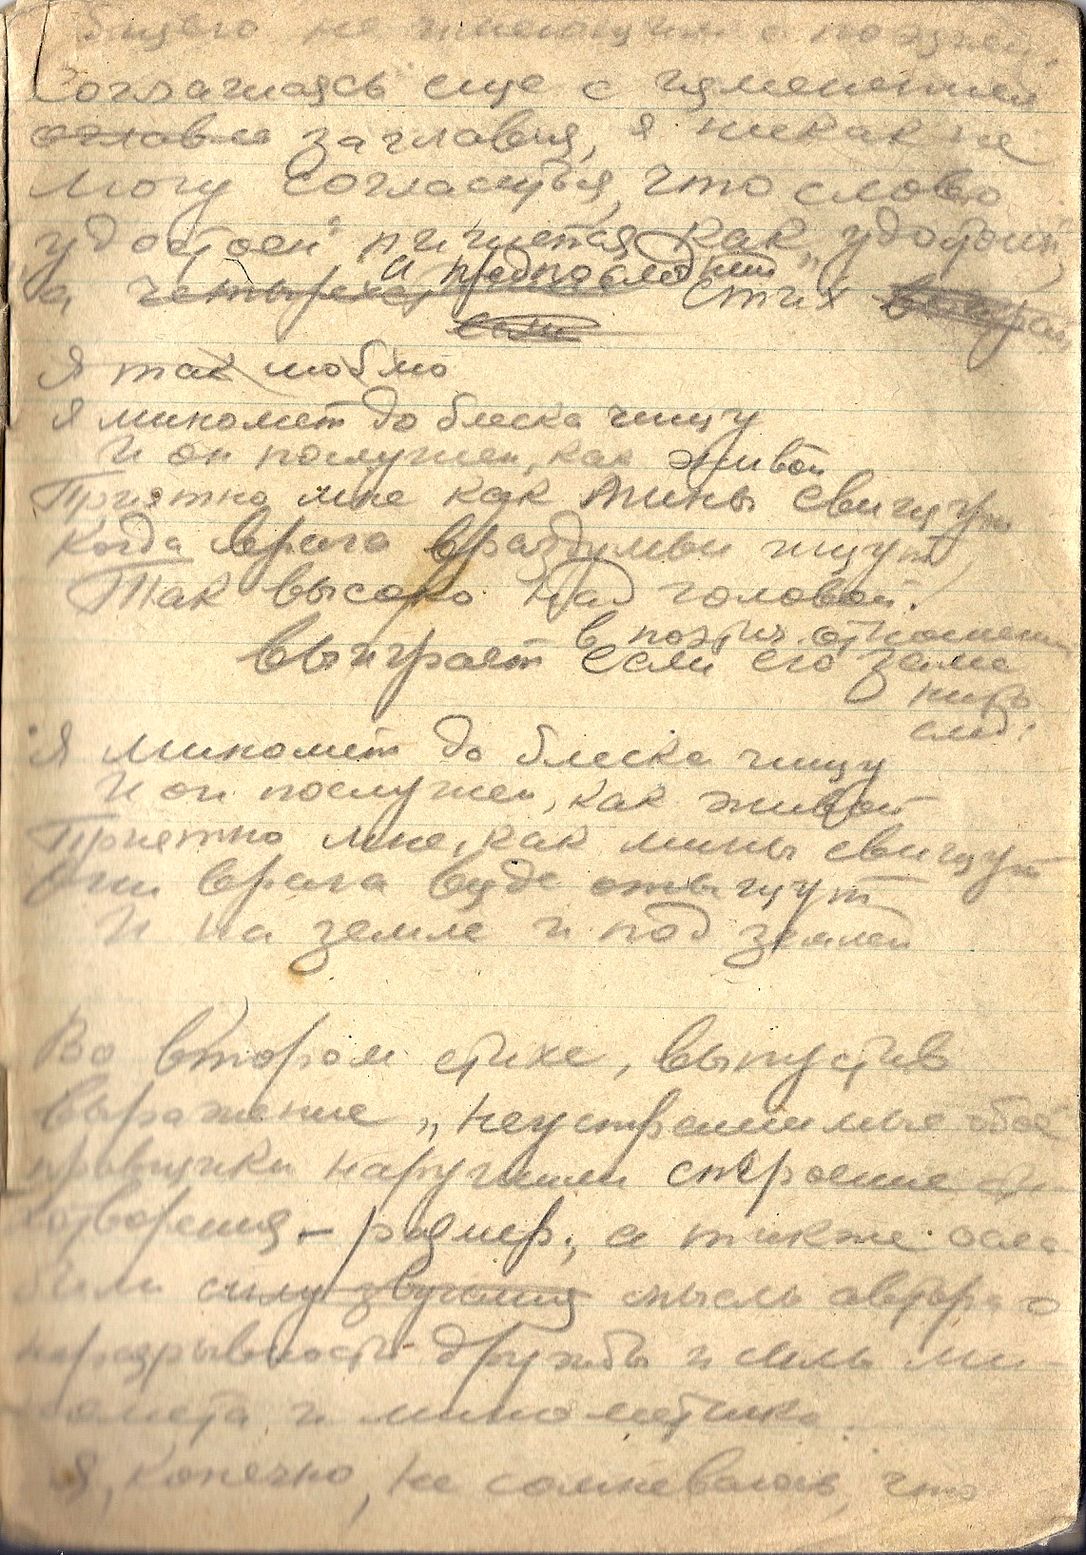 общего не имеющим с поэзией.
Соглашаясь еще с изменением
оглавле заглавия, я никак не
могу согласиться, что слово
удостоен" пишется как „удобрен",
а предпоследний
а четырех стих
если
Я так люблю
Я миномет до блеска чищу
И он послушен, как живой
Приятно мне как мины свищут
Когда врага в раздумьи ищут,
Так высоко над головой.
в поэтич. отношении
выиграет если его заме
нить
след:
"Я миномет до блеска чищу
И он послушен, как живой
Приятно мне, как мины свищут
Они врага везде отыщут
И на земле и под землей
Во втором стихе, выпустив
выражение „неустрашимые обое
правщики нарушили строение сти
хотворения – размер., а также осла
били силу звучания мысль автора о
неразрывности дружбы и силы ми-
номета и минометчика.
Я, конечно, не сомневаюсь, что